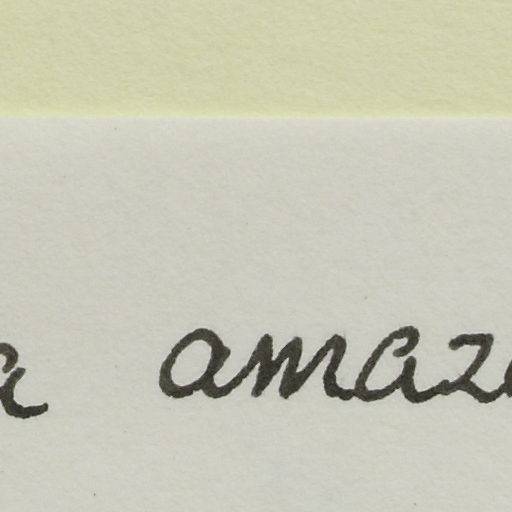 a amaz